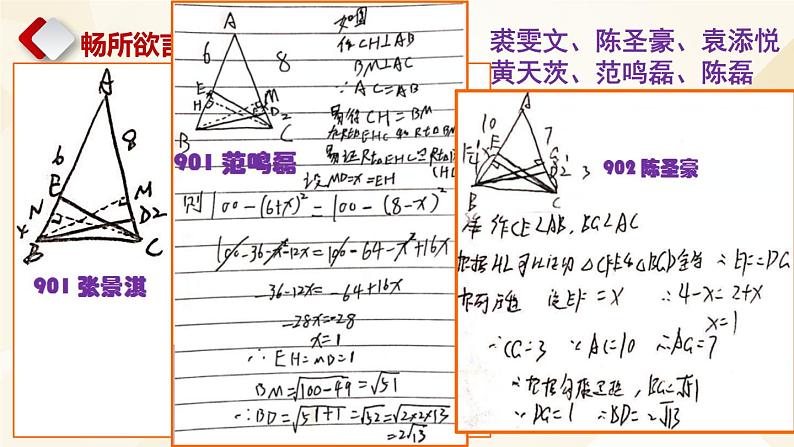 畅所欲言
裘雯文、陈圣豪、袁添悦
黄天茨、范鸣磊、陈磊
A
6
8
E
M
N
D
2
x
B
C
901 张景淇
A
6
8
E
H
M
D
2
B
C
901 范鸣磊
如图
作CH⊥AB
BM⊥AC
∵AC=AB
易得CH=BM
设MD=x=EH
则 100-(6+x)²=100-(8-x)²
100-36-x²-12x=100-64-x²+16x
-36-12x=-64+16x
-28x=-28
x=1
∴EH=MD=1
BM=√100-49=√51
∴BD=√51+1=√52=√2×2×13
=2√13
A
10
7
E
G
D
2
3
B
C
902 陈圣豪
作CE⊥AB,BG⊥AC
∴EF=DG
设EF=x ∴4-x=2+x
x=1
∵CG=3 ∵AC=10 ∴AG=7
∴根据勾股定理,BG=√51
∵DG=1 ∴BD=2√13